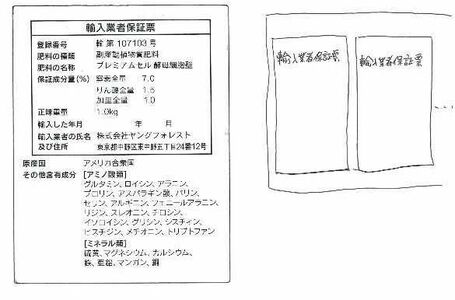 輸入業者保証票
登録番号 輸 第 107103 号
肥料の種類 副産動植物質肥料
肥料の名称 プレミアムセル 酵母顆粒
保証成分量(%) 窒素全量 7.0
りん酸全量 1.5
加里全量 1.0
正味重量 1.0kg
輸入した年月 年 月
輸入業者の氏名 株式会社ヤングフォレスト
及び住所 東京都中野区東中野五丁目24番12号
原産国 アメリカ合衆国
その他含有成分 [アミノ酸類]
グルタミン、ロイシン、アラニン、
プロリン、アスパラギン酸、バリン、
セリン、アルギニン、フェニールアラニン、
リジン、スレオニン、チロシン、
イソロイシン、グリシン、システィン、
ヒスチジン、メチオニン、トリプトファン
[ミネラル類]
硫黄、マグネシウム、カルシウム、
鉄、亜鉛、マンガン、銅
輸入業者保証票
輸入業者保証票